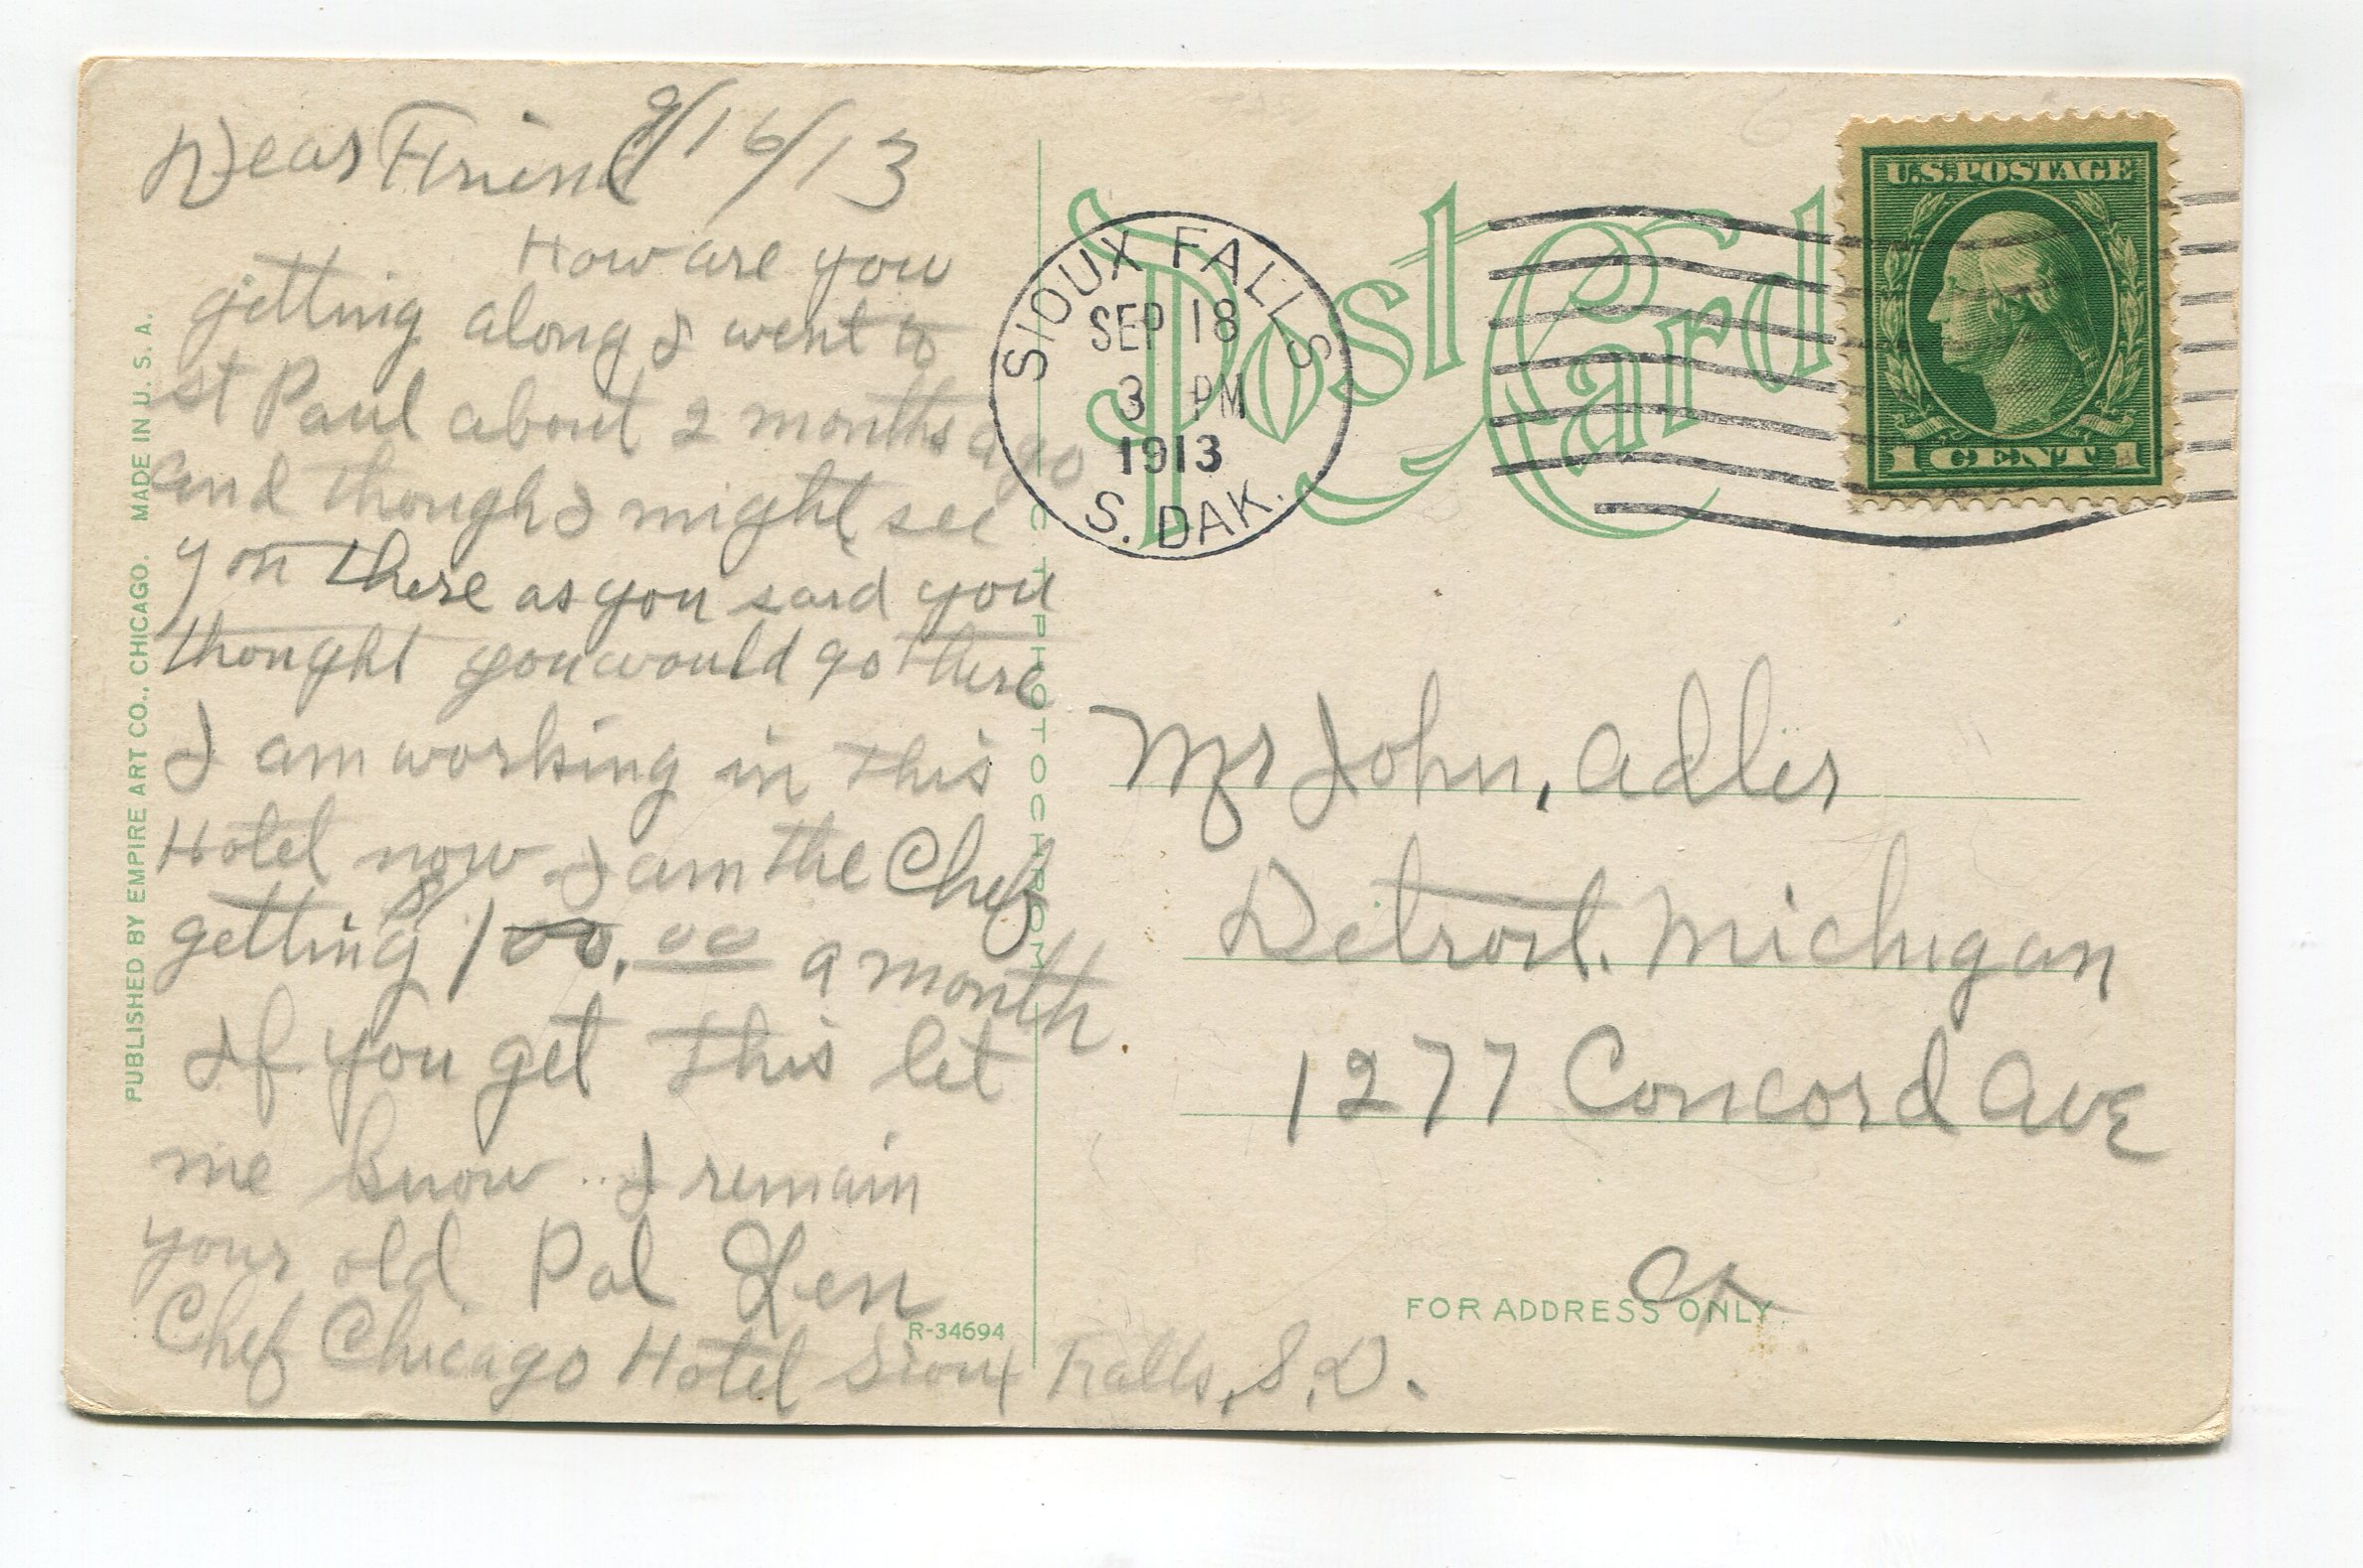 Dear Friend 9/16/13
How are you
getting along I went to
st Paul about 2 months ago
and though I might see
you there as you said you
thought you would go there
I am working in this
Hotel now I am the Chef
getting $100.00 a month
If you get this let
me know .. I remain
your old Pal Len
Chef Chicago Hotel Sioux Falls, S.D.
PUBLISHED BY EMPIRE ART CO., CHICAGO. MADE IN U. S. A.
R-34694
C. T. PHOTOCHROM
Post Card
SIOUX FALLS
SEP 18
3 PM
1913
S. DAK.
U.S. POSTAGE
1 CENT 1
Mr John, Adler
Detroit. Michigan
1277 Concord Ave
FOR ADDRESS ONLY.